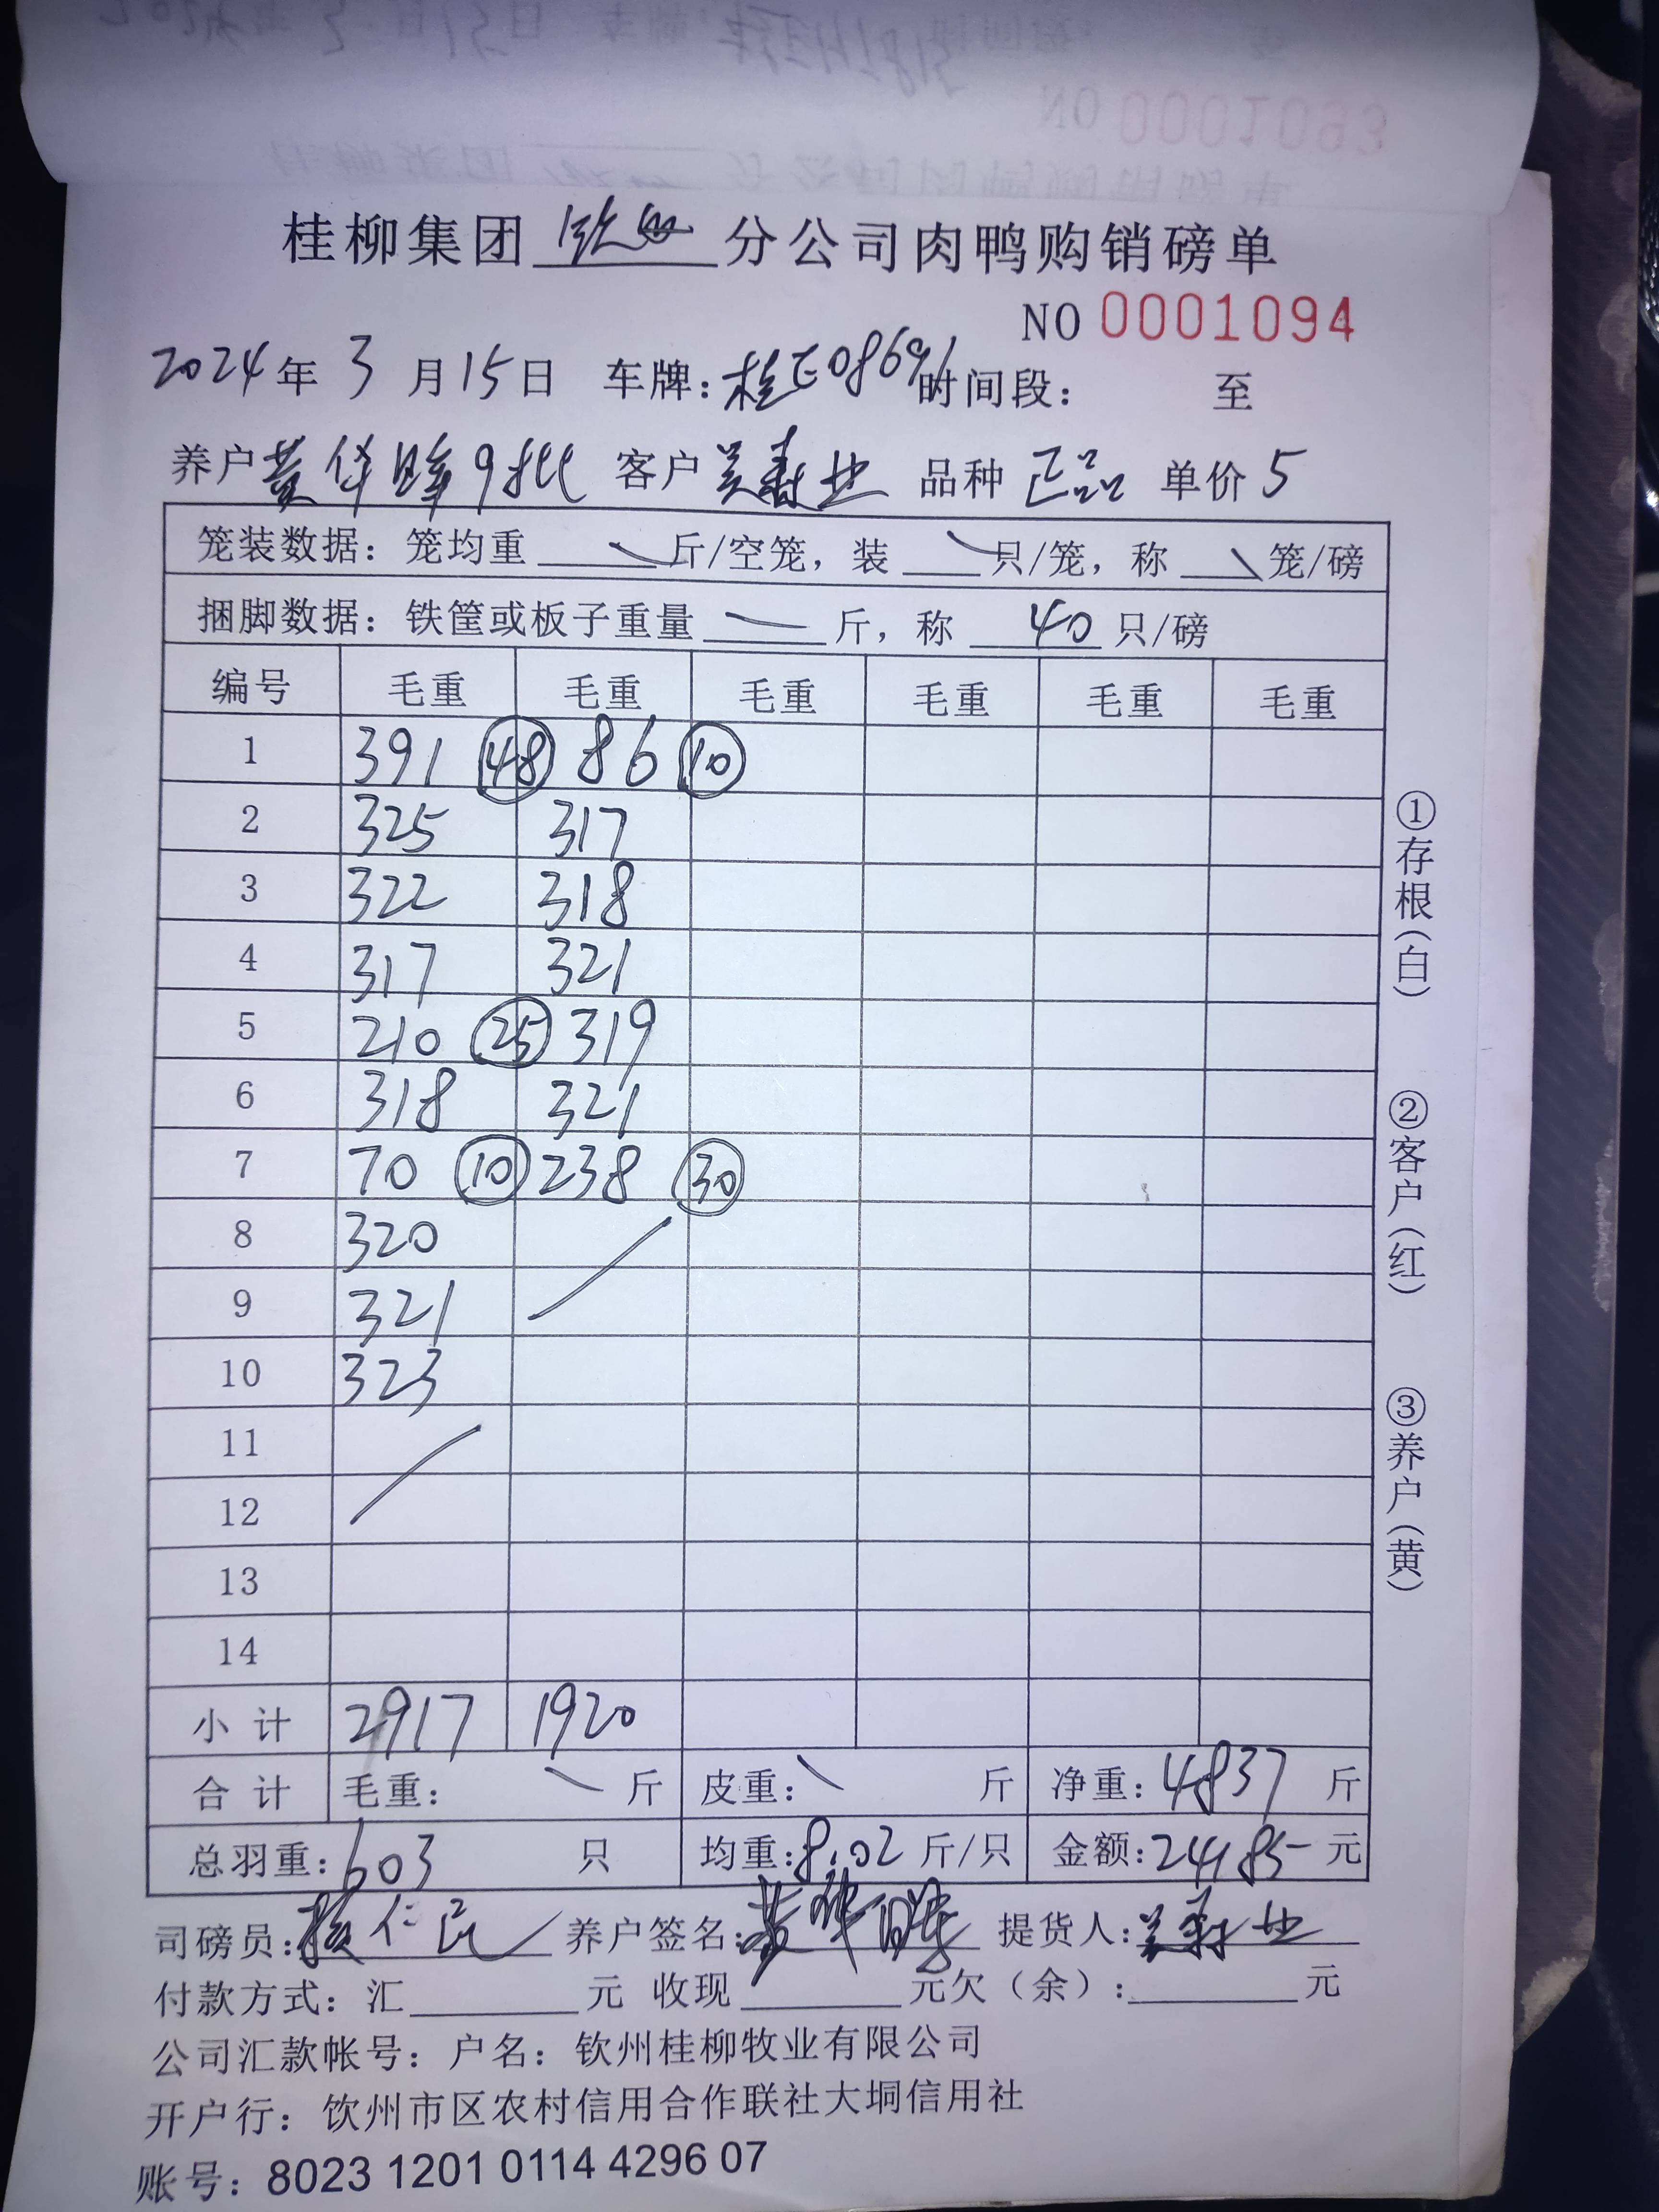 桂柳集团 钦州 分公司肉鸭购销磅单
NO 0001094
2024年 3 月 15 日 车牌: 桂E08691 时间段: 至
养户 黄华晖9批 客户 吴寿业 品种 正品 单价 5
笼装数据: 笼均重 斤/空笼, 装 只/笼, 称 笼/磅
捆脚数据: 铁筐或板子重量 斤, 称 40 只/磅
编号 毛重 毛重 毛重 毛重 毛重 毛重
1 391 48 86 10
2 325 317
3 322 318
4 317 321
5 210 25 319
6 318 321
7 70 10 238 30
8 320
9 321
10 323
11
12
13
14
小 计 2917 1920
合 计 毛重: 斤 皮重: 斤 净重: 4837 斤
总羽重: 603 只 均重: 8.02 斤/只 金额: 24185 元
司磅员: 仁民 养户签名: 黄华晖 提货人: 吴寿业
付款方式: 汇 元 收现 元欠(余): 元
公司汇款帐号: 户名: 钦州桂柳牧业有限公司
开户行: 饮州市区农村信用合作联社大垌信用社
账号: 8023 1201 0114 4296 07
①存根(白)
②客户(红)
③养户(黄)
NO 0001093